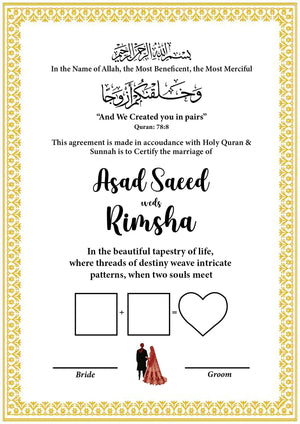 بسم الله الرحمن الرحيم
In the Name of Allah, the Most Beneficent, the Most Merciful
وَخَلَقْنَٰكُمْ أَزْوَٰجًا
“And We Created you in pairs”
Quran: 78:8
This agreement is made in accoudance with Holy Quran &
Sunnah is to Certify the marriage of
Asad Saeed
weds
Rimsha
In the beautiful tapestry of life,
where threads of destiny weave intricate
patterns, when two souls meet
+ =
Bride Groom